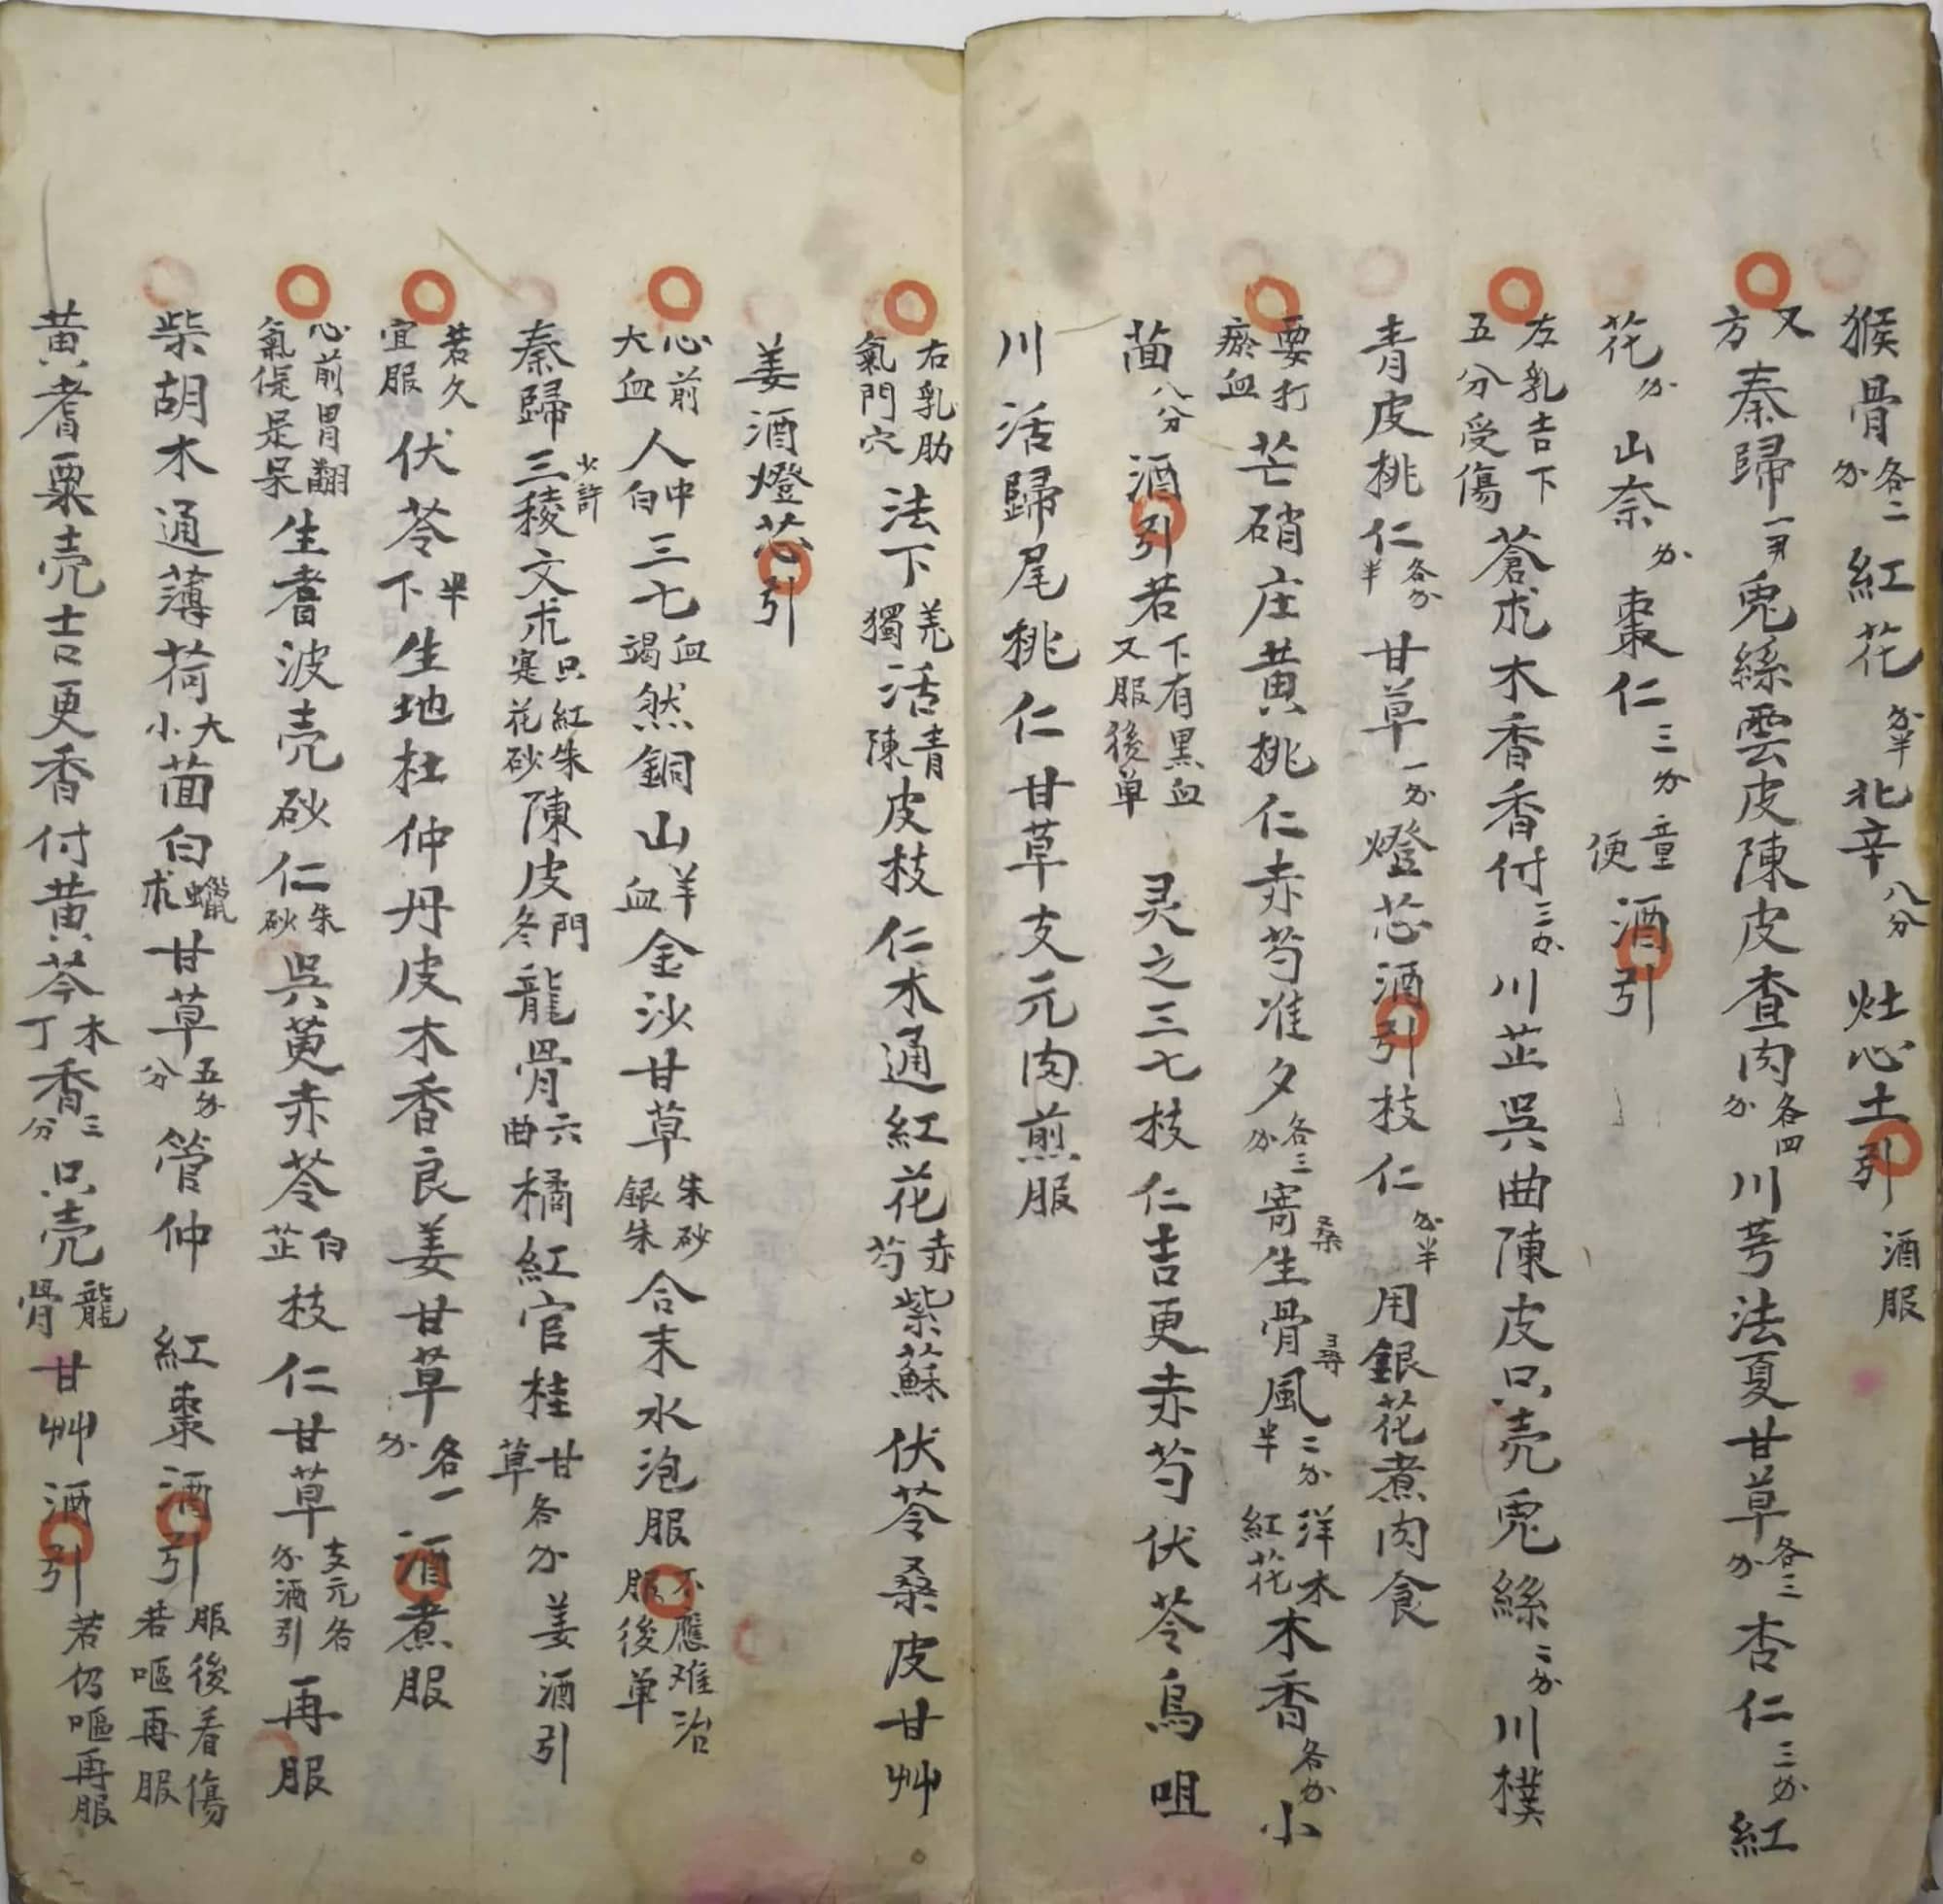 猴骨各二分紅花分半北辛八分灶心土引酒服
又方秦歸一分兎絲雲皮陳皮查肉各四分川芎法夏甘草各三分杏仁三分紅
花分山奈分棗仁三分童便酒引
左乳吉下五分受傷蒼朮木香香付三分川芷吳曲陳皮只壳兎絲二分川樸
青皮桃仁各分半甘草一分燈芯酒引枝仁分半用銀花煮肉食
要打瘀血芒硝庄黄桃仁赤芍准夕各三分寄生桑骨風尋二分半洋木紅花木香各分小
茴八分酒引若下有黒血又服後单灵之三七枝仁吉更赤芍伏苓烏咀
川活歸尾桃仁甘草支元肉煎服
右乳肋氣門穴法下羌獨活青陳皮枝仁木通紅花赤芍紫蘇伏苓桑皮甘艸
姜酒燈芯引
心前大血人中白三七血竭然銅山羊血金沙甘草朱砂銀朱合末水泡服不應难治服後单
秦歸三稜少許文朮只寔紅花朱砂陳皮門冬龍骨六曲橘紅官桂甘草各分姜酒引
若久宜服伏苓半下生地杜仲丹皮木香良姜甘草各一分酒煮服
心前胃翻氣促是呆生耆波壳砂仁朱砂吳萸赤苓白芷枝仁甘草支元各分酒引再服
柴胡木通薄荷大小茴白蠟朮甘草五分分管仲紅棗酒引服後着傷若嘔再服
黄耆粟壳吉更香付黄芩木丁香三分只壳龍骨甘艸酒引若仍嘔再服